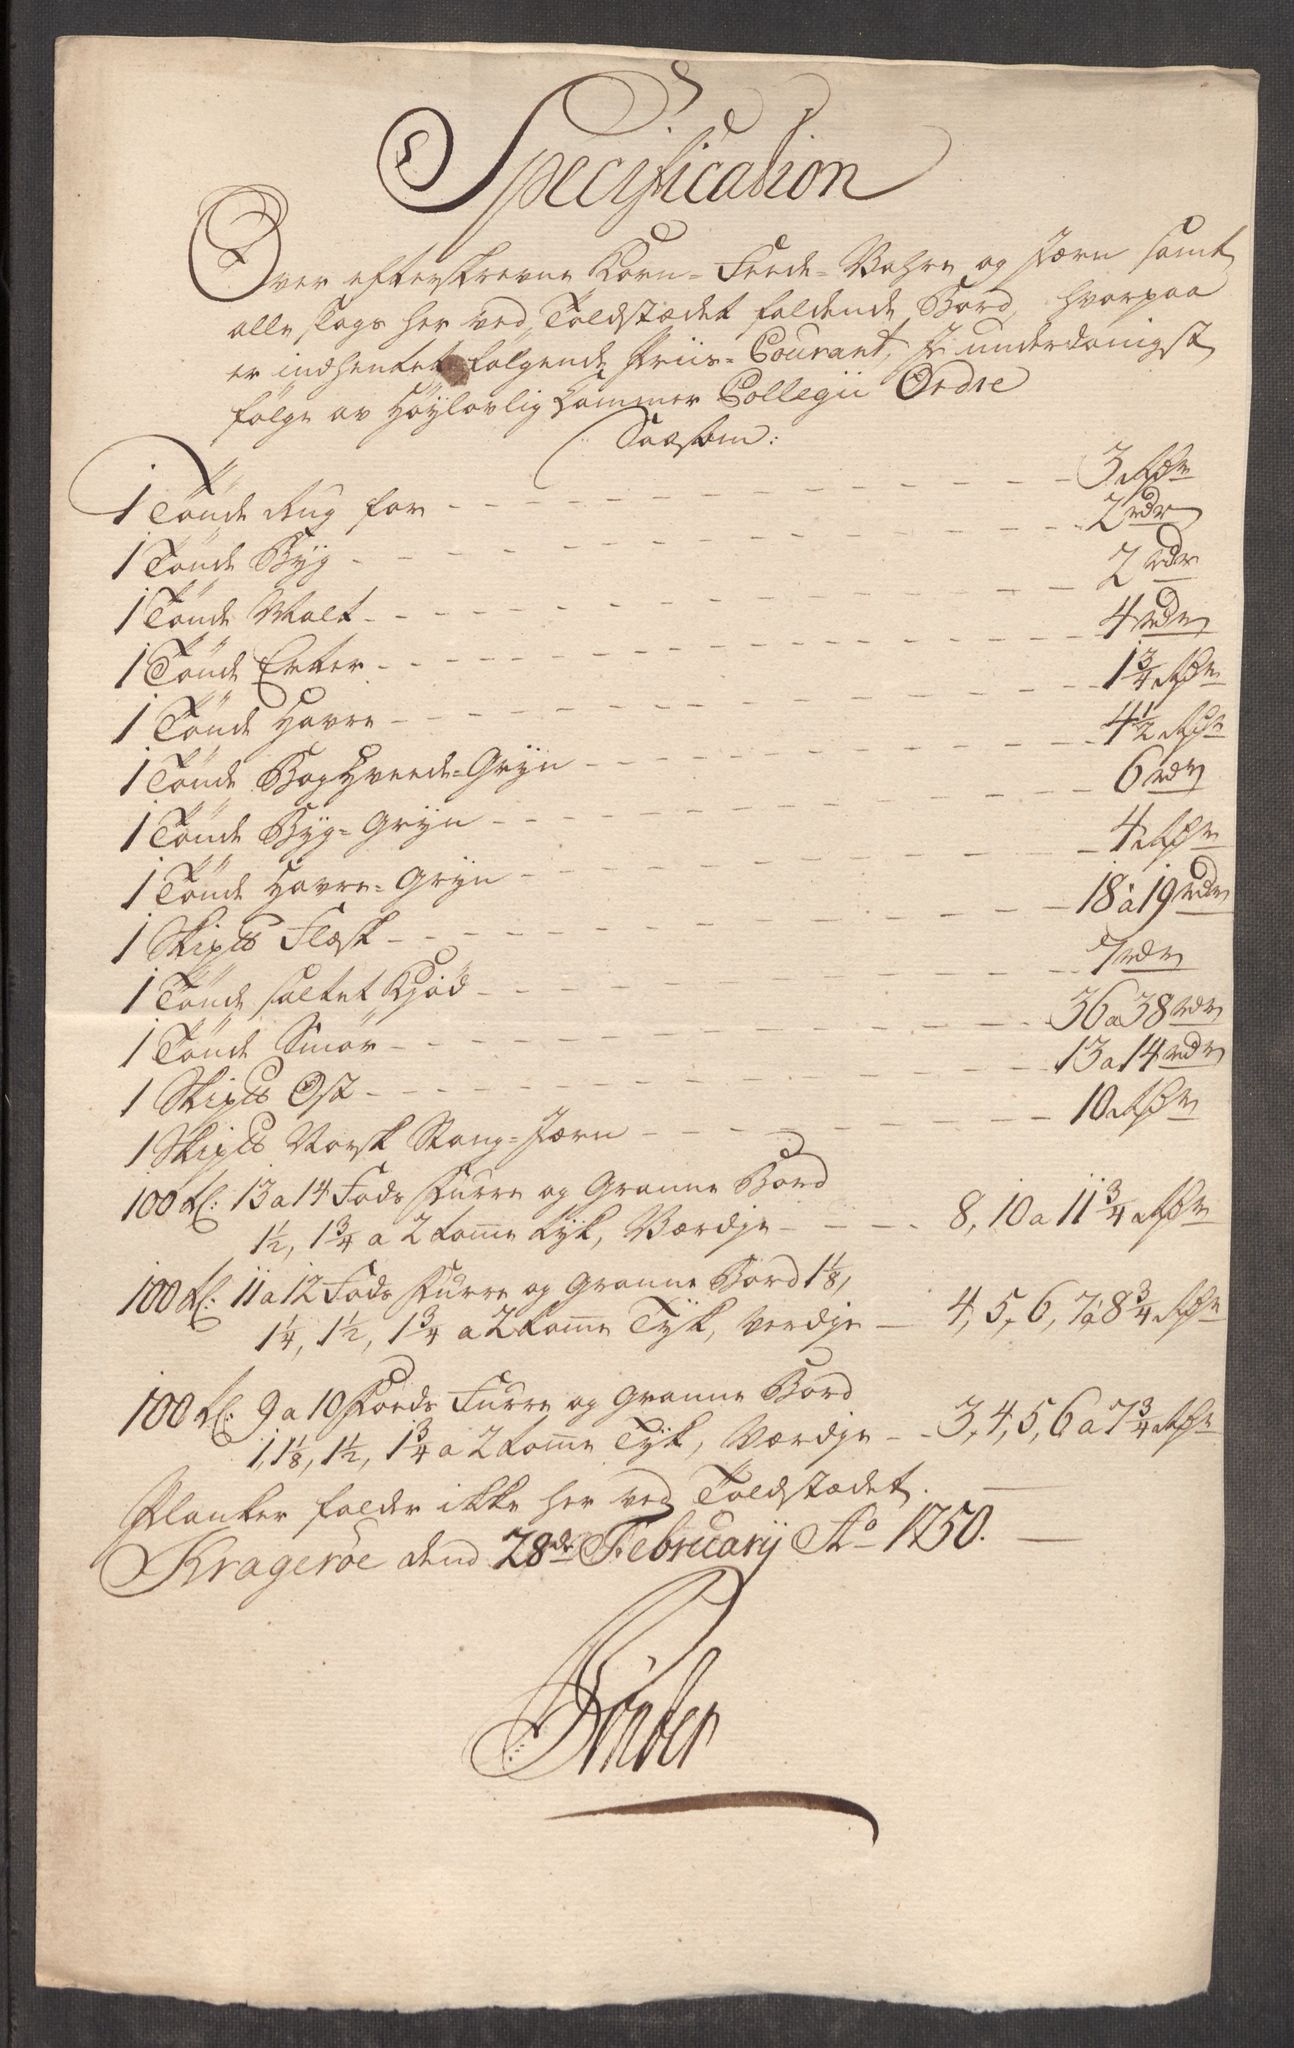 Specification
Over efterskrevne Korn- Feede-Vahre og Jærn samt
alle slags her ved Toldstædet faldende Bord, hvorpaa
er indhentet følgende Priis-Courant, I underdanigst
følge av Høylovlig Cammer Collegii Ordre
Saasom:
1 Tønde Rug for - - - 3 Rdr
1 Tønde Byg - - - 2 rdr
1 Tønde Malt - - - 2 rdr
1 Tønde Erter - - - 4 rdr
1 Tønde Havre - - - 1 3/4 Rdr
1 Tønde Boghveede-Gryn - - - 4 1/2 Rdr
1 Tønde Byg-Gryn - - - 6 rdr
1 Tønde Havre-Gryn - - - 4 Rdr
1 Skip℔ Flæsk - - - 18 a 19 rdr
1 Tønde saltet Kjød - - - 7 rdr
1 Tønde Smør - - - 36 a 38 rdr
1 Skip℔ Ost - - - 13 a 14 rdr
1 Skip℔ Norsk Stang-Jærn - - - 10 Rdr
100 st: 13 a 14 Fods Furre og Granne Bord
1 1/2, 1 3/4 a 2 tomme tyk, Værdje - - - 8, 10 a 11 3/4 Rdr
100 st: 11 a 12 Fods Furre og Granne Bord 1 1/8,
1 1/4, 1 1/2, 1 3/4 a 2 tomme Tyk, Verdje - 4, 5, 6, 7 a 8 3/4 Rdr
100 st: 9 a 10 Foeds Furre og Granne Bord
1, 1 1/8, 1 1/2, 1 3/4 a 2 tomme Tyk, Værdje - - 3, 4, 5, 6 a 7 3/4 Rdr
Planker falder ikke her ved Toldstædet.
Kragerøe dend 28de Februarij Ao 1750.